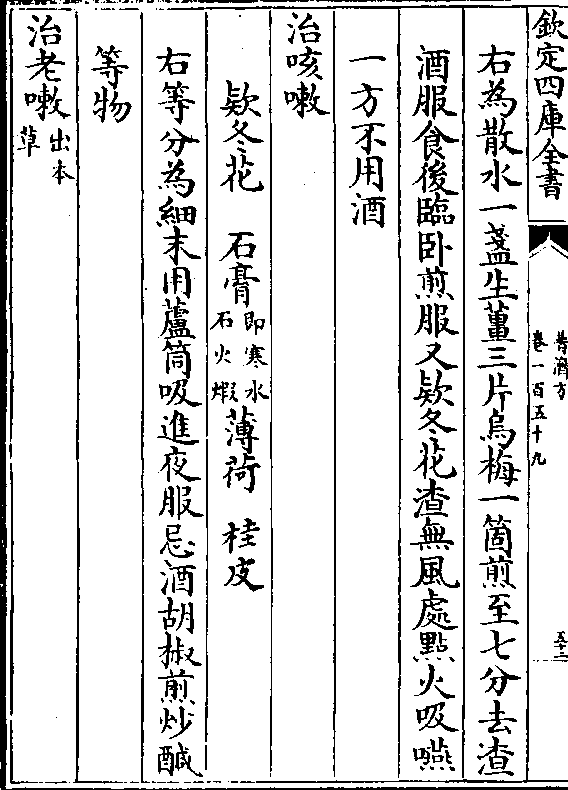 欽定四庫全書
普濟方
卷一百五十九
五十二
右為散水一盞生薑三片烏梅一箇煎至七分去渣
酒服食後臨卧煎服又欵冬花渣無風處點火吸嚥
一方不用酒
治咳嗽
欵冬花 石膏即寒水石火煅薄荷 桂皮
右等分為細末用蘆筒吸進夜服忌酒胡椒煎炒醎
等物
治老嗽出本草